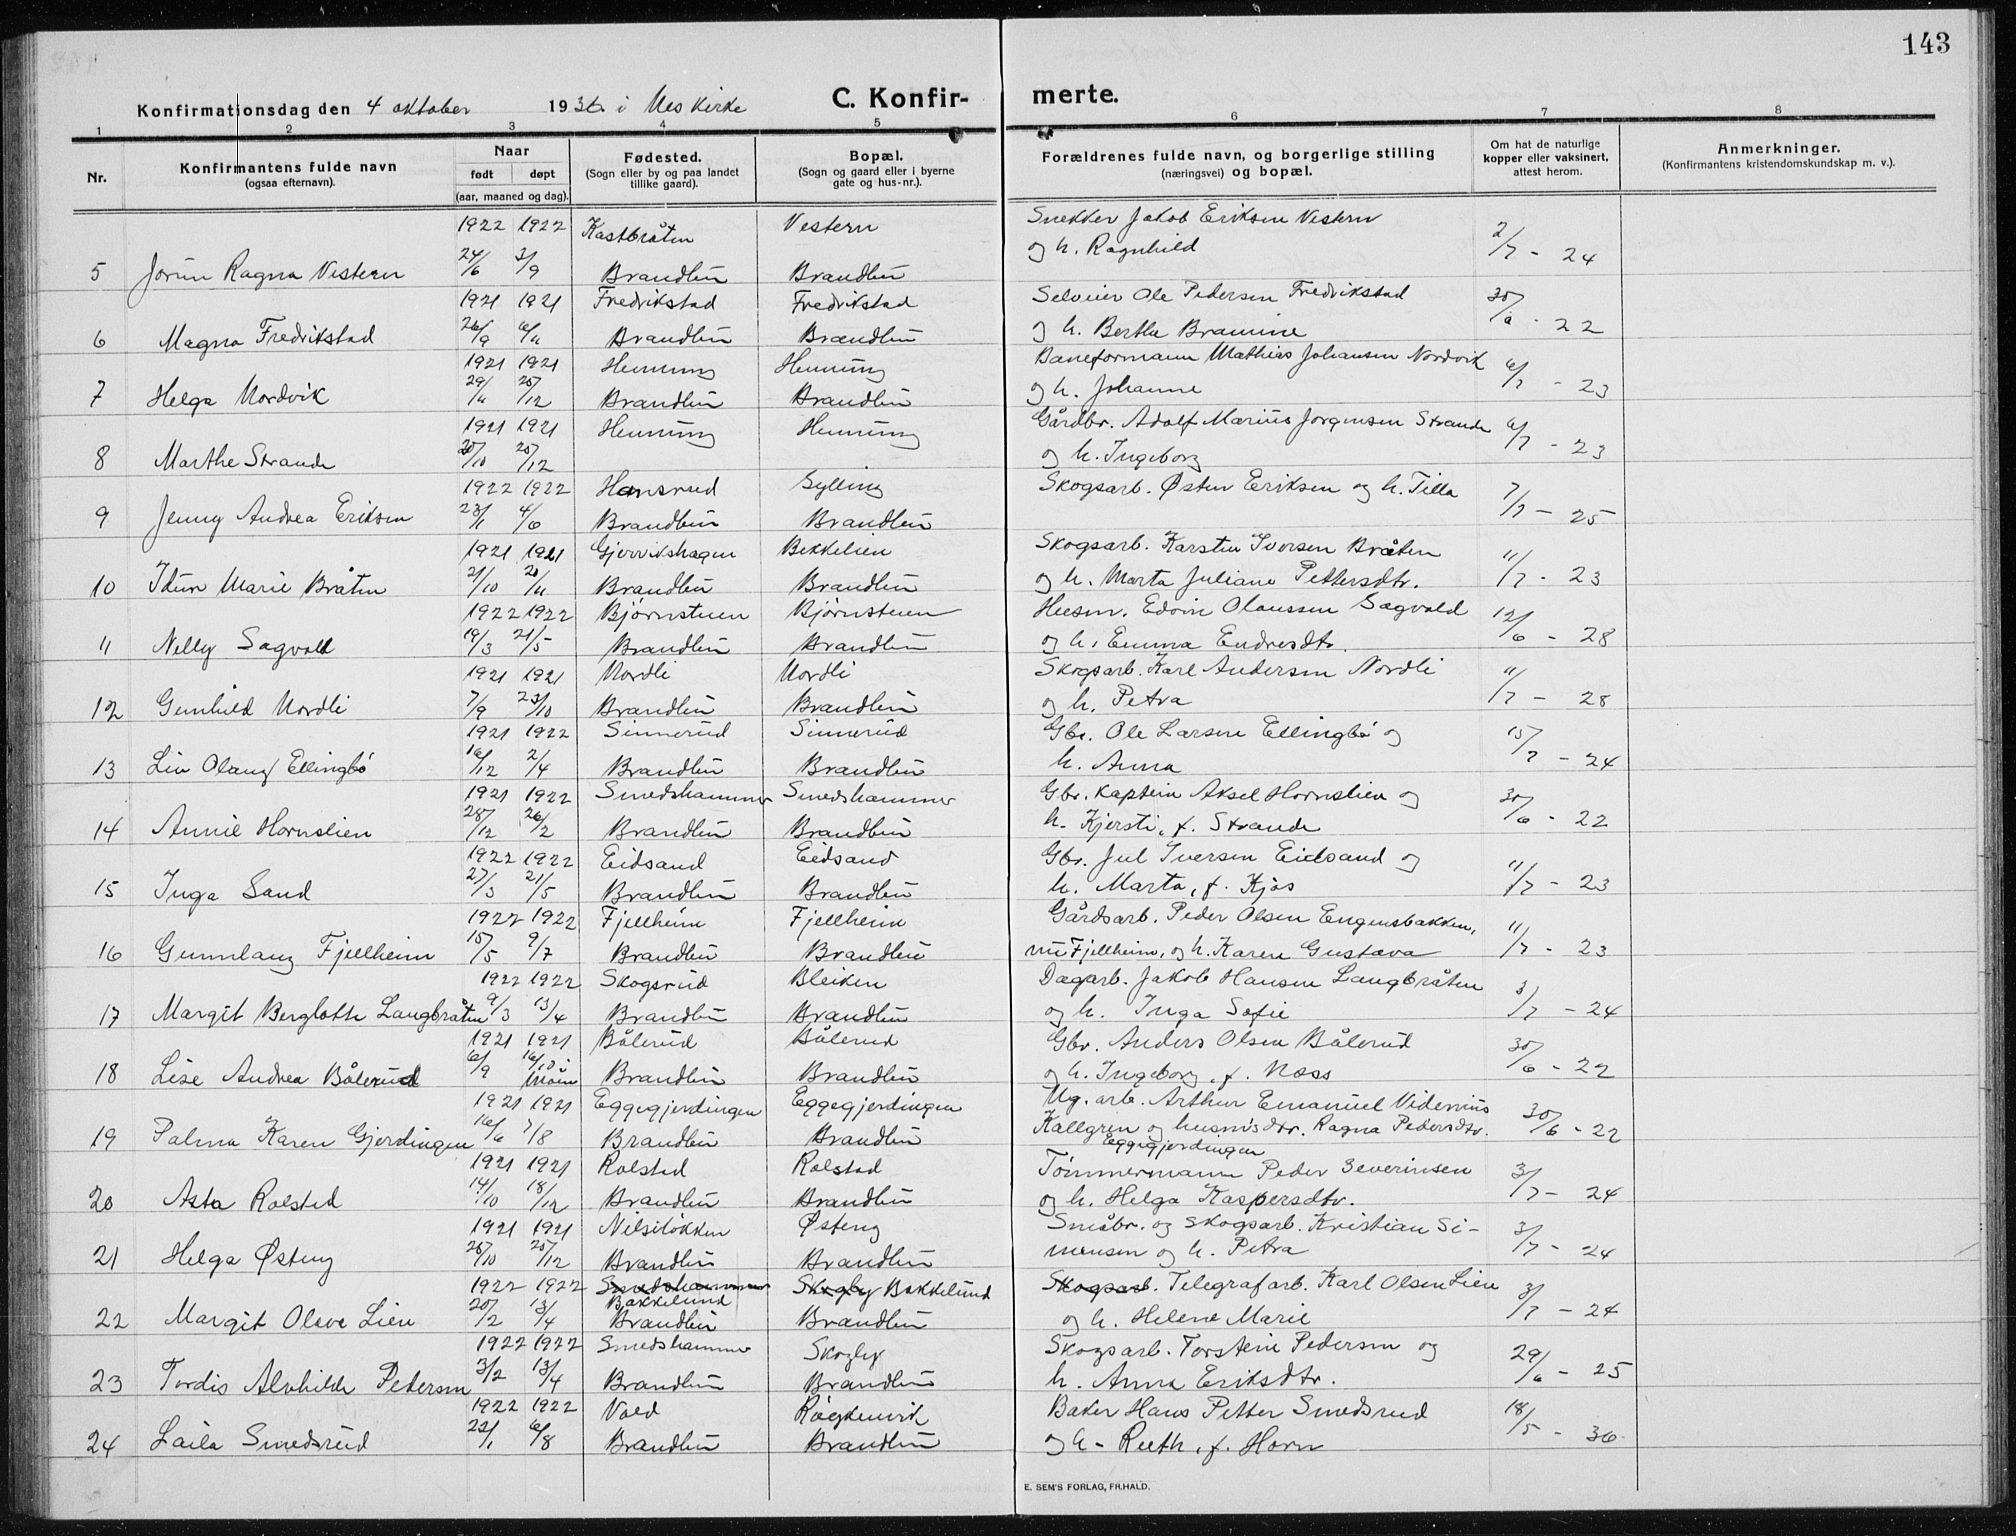 143
Konfirmationsdag den 4 oktober 1936 i Nes kirke C. Konfir- merte.
1 2 3 4 5 6 7 8
Nr. Konfirmantens fulde navn (ogsaa efternavn). Naar født døpt (aar, maaned og dag). Fødested. (Sogn eller by og paa landet tillike gaard). Bopæl. (Sogn og gaard eller i byerne gate og hus-nr.). Forældrenes fulde navn, og borgerlige stilling (næringsvei) og bopæl. Om hat de naturlige kopper eller vaksinert, attest herom. Anmerkninger. (Konfirmantens kristendomskundskap m. v.).
1922 1922 Kastbråten Vestern Snekker Jakob Eriksen Vestern
5 Jorun Ragna Vestern 24/6 3/9 Brandbu Brandbu og h. Ragnhild 2/7 - 24
1921 1921 Fredrikstad Fredrikstad Selveier Ole Pedersen Fredrikstad
6 Magna Fredrikstad 26/9 6/11 Brandbu Brandbu og h. Bertha Bramine 30/6 - 22
1921 1921 Henning Henning Baneformann Mathias Johansen Nordvik
7 Helga Nordvik 29/11 25/12 Brandbu Brandbu og h. Johanne 6/7 - 23
1921 1921 Henning Henning Gårdbr. Adolf Marius Jørgensen Strande
8 Marthe Strande 20/10 25/12 og h. Ingeborg 6/7 - 23
1922 1922 Hansrud Gylling Skogsarb. Østen Eriksen og h. Tilla
9 Jenny Andrea Eriksen 23/1 4/6 Brandbu Brandbu 7/7 - 25
1921 1921 Gjervikshagen Bekkelien Skogsarb. Karsten Iversen Bråten
10 Idun Marie Bråten 21/10 20/11 Brandbu Brandbu og h. Marta Juliane Pettersdtr. 11/7 - 23
1922 1922 Bjørnstuen Bjørnstuen Husm. Edvin Olaussen Sagvold
11 Nelly Sagvold 19/3 21/5 Brandbu Brandbu og h. Emma Endresdtr. 12/6 - 28
1921 1921 Nordli Nordli Skogsarb. Karl Andersen Nordli
12 Gunhild Nordli 7/9 23/10 Brandbu Brandbu og h. Petra 11/7 - 28
1921 1922 Sinnerud Sinnerud Gbr. Ole Larsen Ellingbø og
13 Liv Olaug Ellingbø 16/12 2/4 Brandbu Brandbu h. Anna 15/7 - 24
1921 1922 Smedshammer Smedshammer Gbr. Kaptein Aksel Hornslien og
14 Annie Hornslien 28/12 26/2 Brandbu Brandbu h. Kjersti, f. Strande 30/6 - 22
1922 1922 Eidsand Eidsand Gbr. Jul Iversen Eidsand og
15 Inga Sand 27/3 21/5 Brandbu Brandbu h. Marta, f. Kjos 11/7 - 23
1922 1922 Fjellheim Fjellheim Gårdsarb. Peder Olsen Engensbakken,
16 Gunnlaug Fjellheim 15/5 9/7 Brandbu Brandbu nu Fjellheim, og h. Karen Gustava 11/7 - 23
1922 1922 Skogsrud Bleiken Dagarb. Jakob Hansen Langbråten
17 Margit Berglotte Langbråten 9/3 13/4 Brandbu Brandbu og h. Inga Sofie 3/7 - 24
1921 1921 Bålerud Bålerud Gbr. Anders Olsen Bålerud
18 Lise Andrea Bålerud 6/9 16/10 Brandbu Brandbu og h. Ingeborg, f. Næss 30/6 - 22
1921 1921 Eggegjerdingen Eggegjerdingen Ug. arb. Arthur Emanuel Videnius
19 Palma Karen Gjerdingen 16/6 7/8 Brandbu Brandbu Kallgren og husm.sdtr. Ragna Pedersdtr. 30/6 - 22
Eggegjerdingen
1921 1921 Rolstad Rolstad Tømmermann Peder Severinsen
20 Asta Rolstad 14/10 18/12 Brandbu Brandbu og h. Helga Kaspersdtr. 3/7 - 24
1921 1921 Nilsiløkken Østeng Småbr. og skogsarb. Kristian Si-
21 Helga Østeng 26/10 25/12 Brandbu Brandbu mensen og h. Petra 3/7 - 24
1922 1922 Smedshammer Skogby Bakkelund Skogsarb. Telegrafarb. Karl Olsen Lien
Bakkelund
22 Margit Olava Lien 20/2 13/4 Brandbu Brandbu og h. Helene Marie 3/7 - 24
1922 1922 Smedshammer Skogby Skogsarb. Torstein Pedersen og
23 Tordis Alvhilde Pedersen 3/2 13/4 Brandbu Brandbu h. Anna Eriksdtr. 29/6 - 25
1922 1922 Vold Røykenvik Baker Hans Petter Smedsrud
24 Laila Smedsrud 22/1 6/8 Brandbu Brandbu og h. Ruth, f. Horn 18/5 - 36
E. SEM'S FORLAG, FR.HALD.